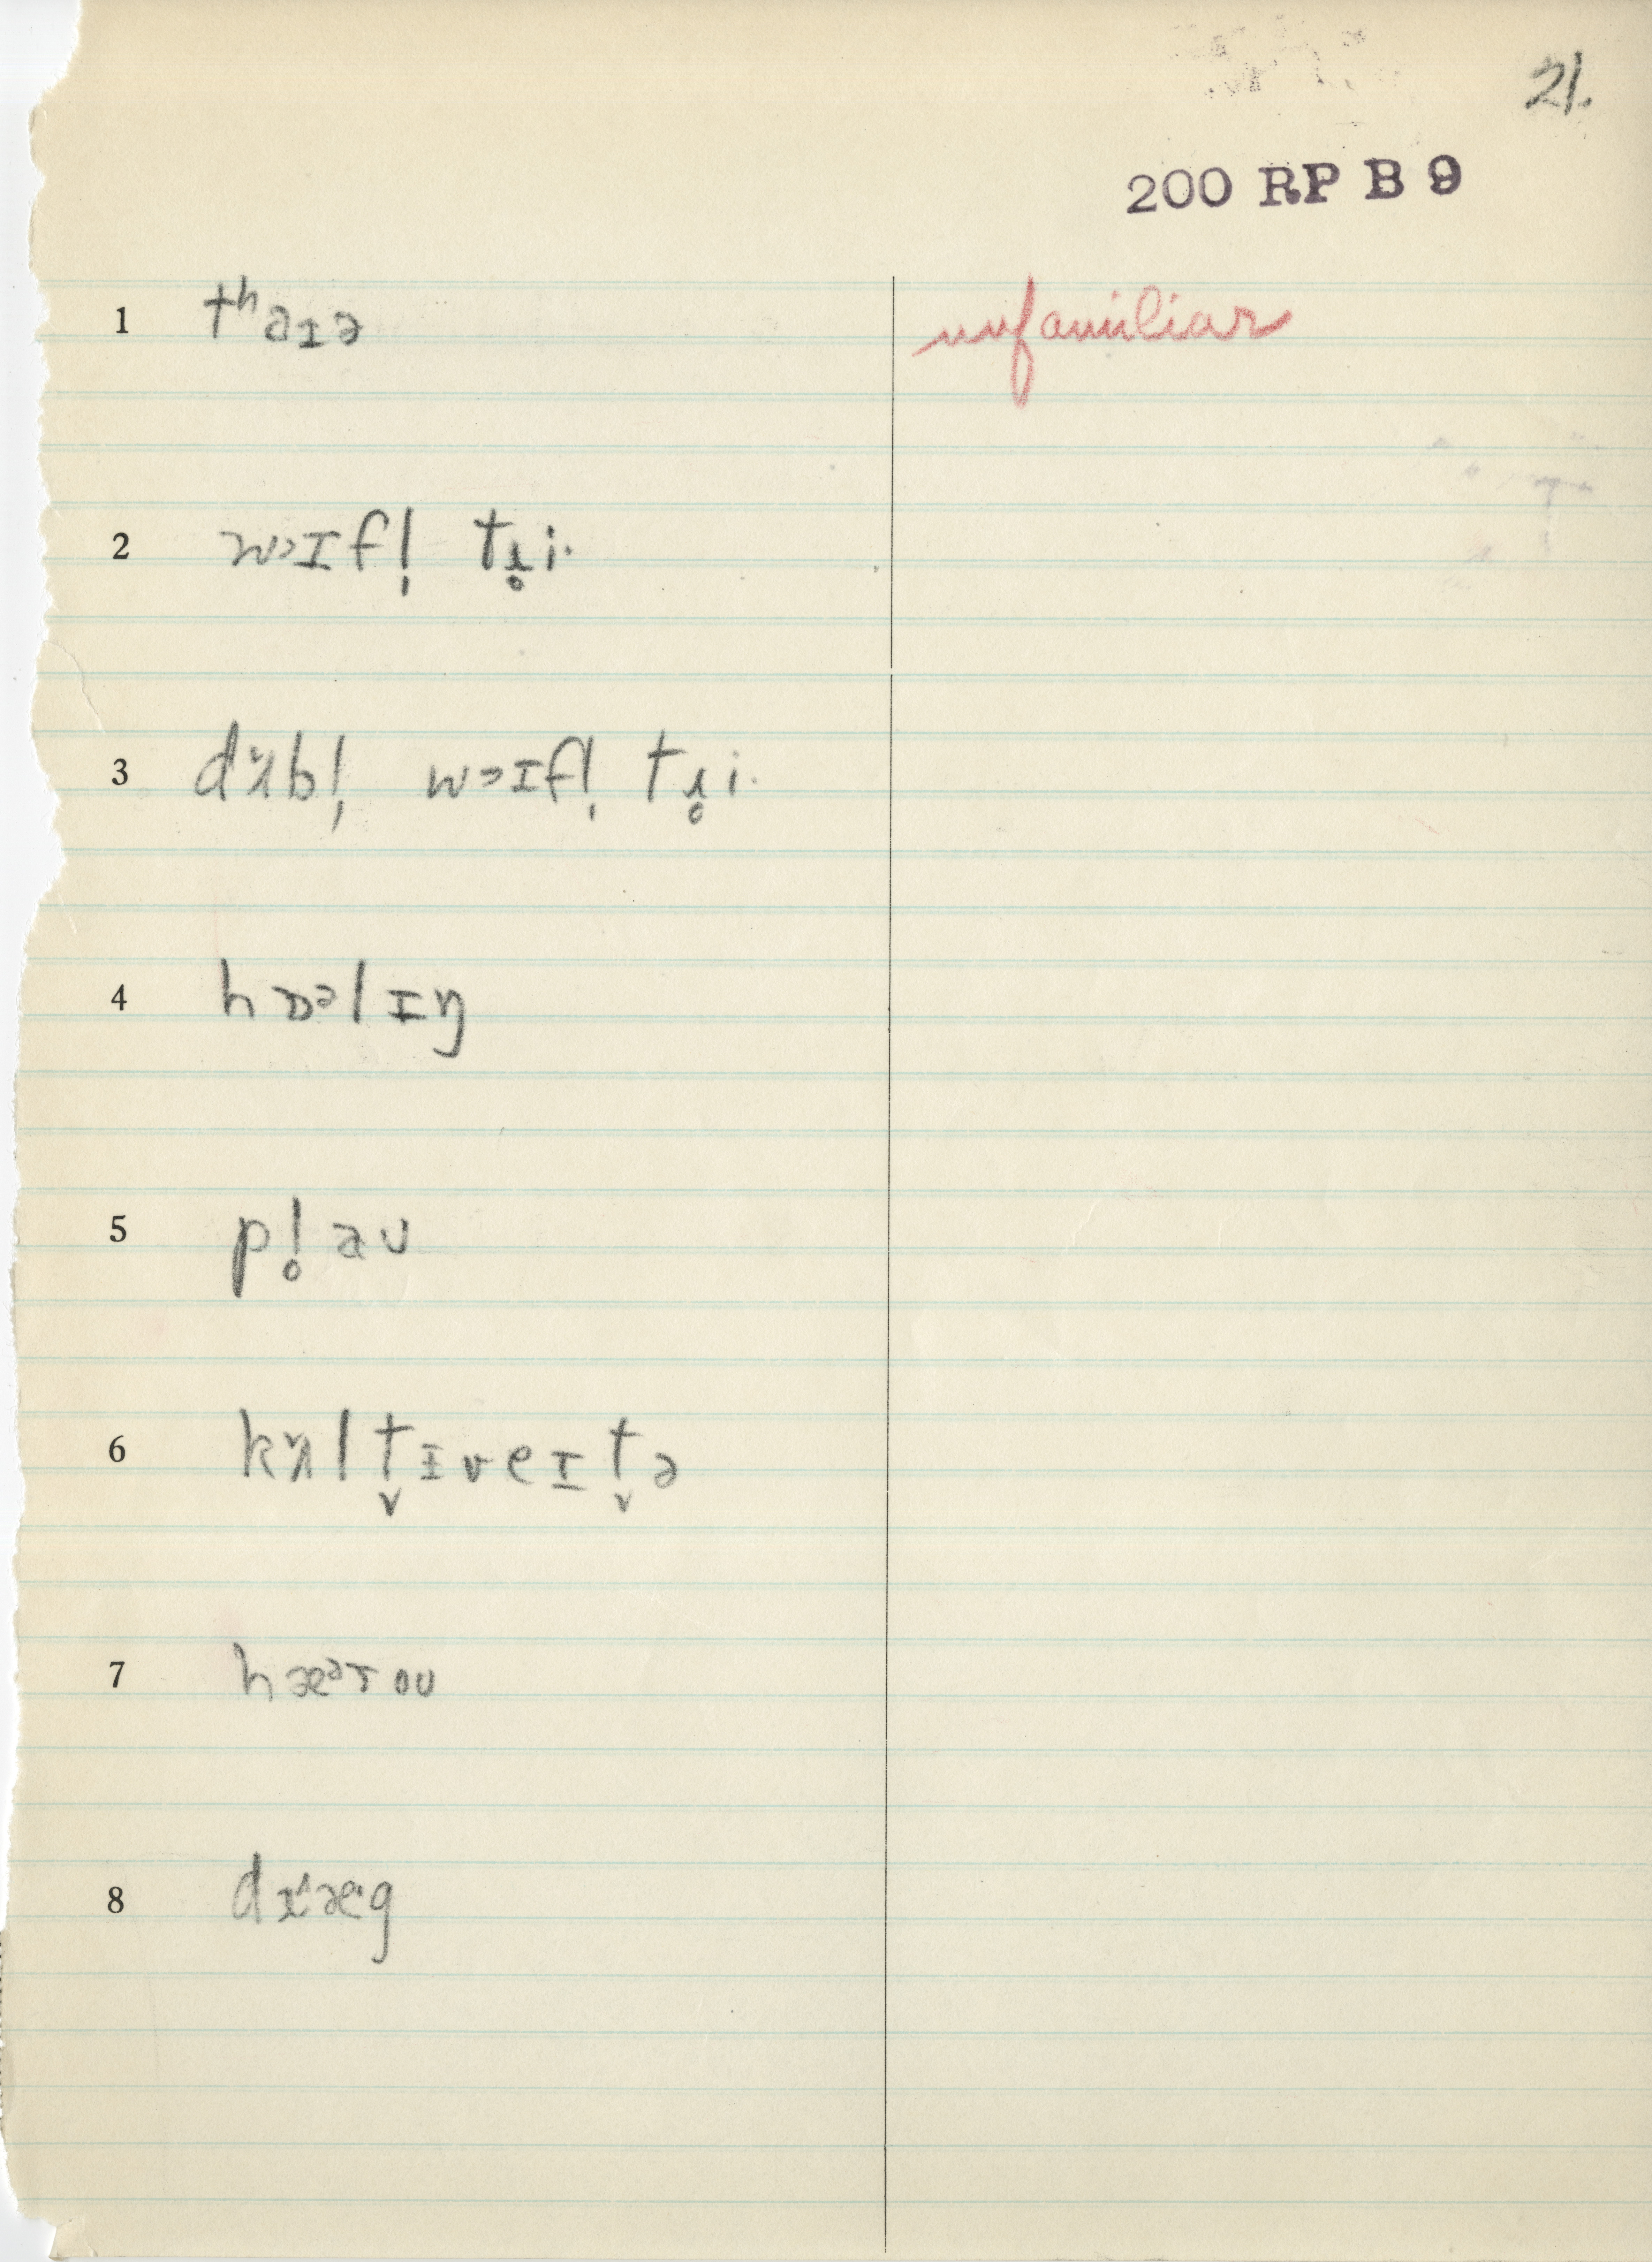 21.
200 RP B 9
1 tʰaɪə unfamiliar
2 wɔɪfl̩ tɹ̥i·
3 dɜ̆bl̩ wɔɪfl̩ tɹ̥i·
4 hɒᵊlɪŋ
5 pl̥aʊ
6 kɜ̆lt̬ɪveɪt̬ə
7 hæᵊroʊ
8 dɹæ·g